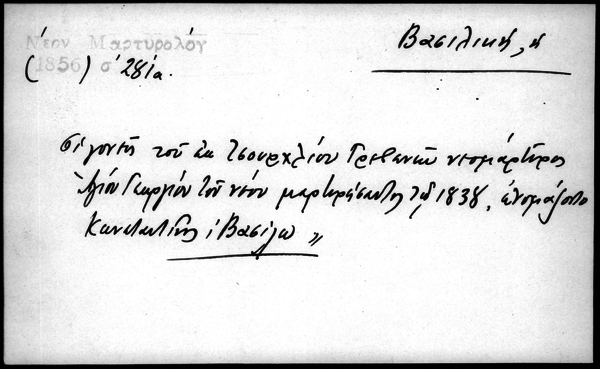 Νέον Μαρτυρολόγ
(1856) σ 281α.
Βασιλική, ἡ
Οἱ γονεῖς τοῦ ἐκ Τσουρχλίου Γρεβενῶν νεομάρτυρος
Ἁγίου Γεωργίου τοῦ νέου μαρτυρήσαντος τῷ 1838, ὠνομάζοντο
Κωνσταντῖνος & Βασίλω "